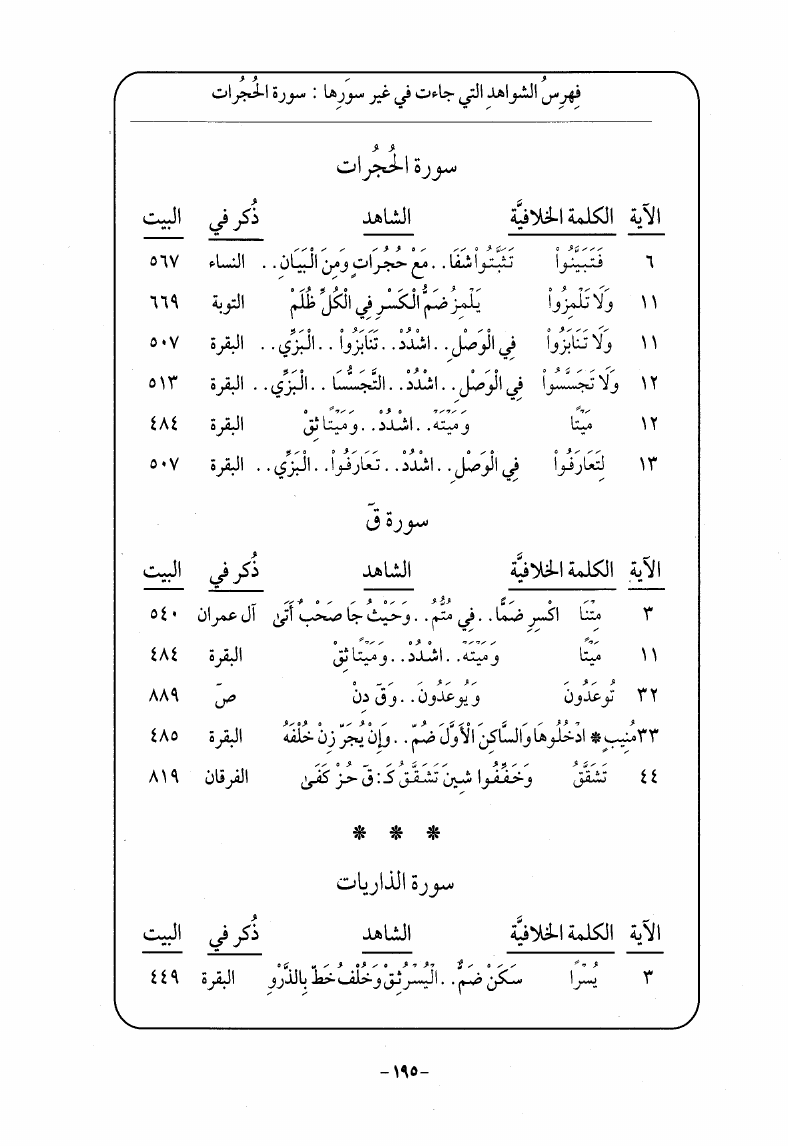 فِهرِسُ الشواهدِ التي جاءت في غير سوَرِها : سورة الحُجُرات
سورة الحُجُرات
الآية الكلمة الخلافيَّة الشاهد ذُكر في البيت
٦ فَتَبَيَّنُواْ تَثَبَّتُواْ شَفَا..مَعْ حُجُرَاتٍ وَمِنَ الْبَيَانِ.. النساء ٥٦٧
١١ وَلَا تَلْمِزُواْ يَلْمِزُ ضَمُّ الْكَسْرِ فِي الْكُلِّ ظُلَمْ التوبة ٦٦٩
١١ وَلَا تَنَابَزُواْ فِي الْوَصْلِ..اشْدُدْ..تَنَابَزُواْ..الْبَزِّي.. البقرة ٥٠٧
١٢ وَلَا تَجَسَّسُواْ فِي الْوَصْلِ..اشْدُدْ..التَّجَسُّسَا..الْبَزِّي.. البقرة ٥١٣
١٢ مَيْتًا وَمَيْتَهْ..اشْدُدْ..وَمَيْتًا ثِقْ البقرة ٤٨٤
١٣ لِتَعَارَفُواْ فِي الْوَصْلِ..اشْدُدْ..تَعَارَفُواْ..الْبَزِّي.. البقرة ٥٠٧
سورة قَ
الآية الكلمة الخلافيَّة الشاهد ذُكر في البيت
٣ مِتْنَا اكْسِرِ ضَمًّا..فِي مُتُّمُ..وَحَيْثُ جَا صَحْبٌ أَتَىٰ آل عمران ٥٤٠
١١ مَيْتًا وَمَيْتَهْ..اشْدُدْ..وَمَيْتًا ثِقْ البقرة ٤٨٤
٣٢ تُوعَدُونَ وَيُوعَدُونَ..وَقَ دِنْ صَ ٨٨٩
٣٣ مُنِيبٍ * ادْخُلُوهَا وَالسَّاكِنَ الْأَوَّلَ ضُمّ..وَإِنْ يُجَرّ زِنْ خُلْفَهُ البقرة ٤٨٥
٤٤ تَشَقَّقُ وَخَفَّفُوا شِينَ تَشَقَّقُ كَـ:قَ حُزْ كَفَىٰ الفرقان ٨١٩
* * *
سورة الذاريات
الآية الكلمة الخلافيَّة الشاهد ذُكر في البيت
٣ يُسْرًا سَكَنْ ضَمٌّ..الْيُسْرُ ثِقْ وَخُلْفُ خَطّ بِالذَّرْوِ البقرة ٤٤٩
-١٩٥-